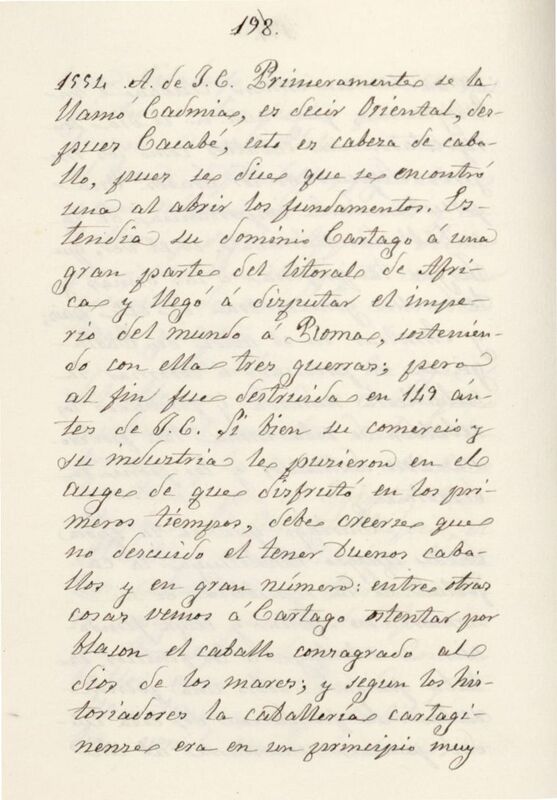 198.
1554 A. de J. C. Primeramente se la
llamó Cadmia, es decir Oriental, des-
pues Cacabé, esto es cabeza de caba-
llo, pues se dice que se encontró
una al abrir los fundamentos. Es-
tendia su dominio Cartago á una
gran parte del litoral de Afri-
ca y llegó á disputar el impe-
rio del mundo á Roma, sostenien-
do con ella tres guerras; pero
al fin fue destruida en 149 án-
tes de J. C. Si bien su comercio y
su industria le pusieron en el
auge de que disfrutó en los pri-
meros tiempos, debe creerse que
no descuido el tener buenos caba-
llos y en gran número: entre otras
cosas vemos á Cartago ostentar por
blason el caballo consagrado al
dios de los mares; y segun los his-
toriadores la caballería cartagi-
nense era en un principio muy